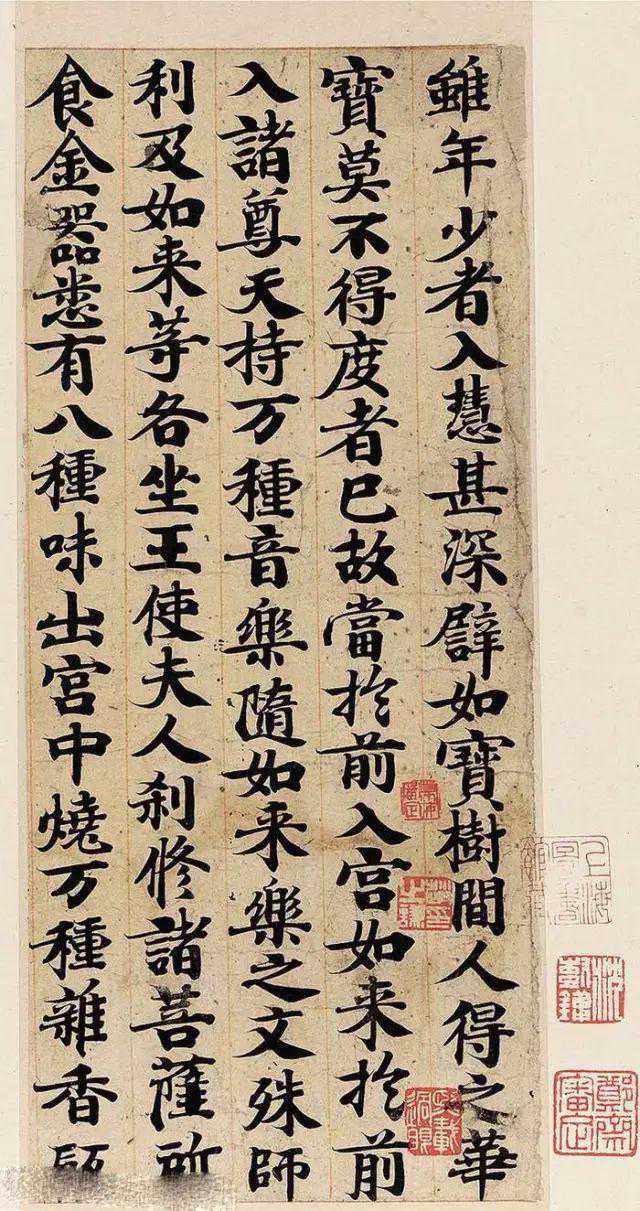 雖年少者入慧甚深譬如寶樹間人得之華
寶莫不得度者已故當扵前入宮如来扵前
入諸尊天持万種音樂隨如来樂之文殊師
利及如来等各坐王使夫人剎修諸菩薩所
食金器悉有八種味出宮中燒万種雜香